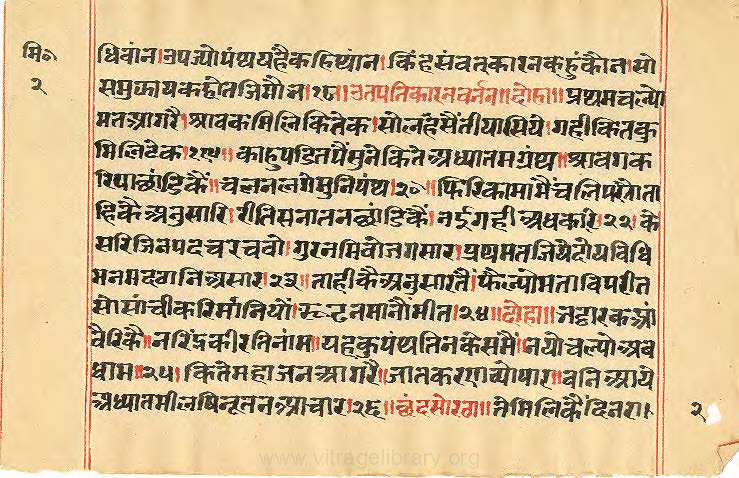 मि॰
२
धिवांन। उपज्यो पंथ यहै कहिथांन। किंह संवत कारन कहुं कौन। सो
समुझाय कहौ तजि मौन। १८। उतपति कारन वर्नन॥ दोहा॥ प्रथम चल्यो
मत आगरै। श्रावक मिलि कितेक। सोलहसै तीयासिये। गही कितकु
मिलि टेक। १९॥ काहु पंडित पैं सुने किते अध्यातम ग्रंथ। श्रावग क
रिया छांडि कैं। चलन लगे मुनि पंथ। २०॥ फिरि कामा मै चलि पर्यो ता
हि कै अनुसारि। रीति सनातन छांडि कैं। नई गही अघकारि। २२। के
सरि जिनपद चरचवो। गुरु नमिवो जग सार। प्रथम तजि ये दोय विधि
मन मद ठानि असार। २३॥ ताही कै अनुसार तैं। फैल्यो मत विपरीत
सो सांची करि मांनियौं। झूठ न मानौं मीत। २४॥ दोहा॥ भट्टारक आं
वैरि कै। नरिंद्र कीरति नांम। यह कुपंथ तिनके समैं। नयो चल्यो अघ
धाम। २५। किते महाजन आगरै। जात करण व्योपार। वनि आये
अध्यातमी लषि नूतन आचार। २६॥ छंद सोरठा॥ ते मिलि कैं दिन रा।
२
www.vitragelibrary.org